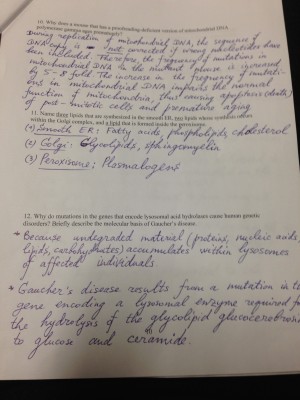 10. Why does a mouse that has a proofreading-deficient version of mitochondrial DNA
polymerase gamma ages prematurely?
During replication of mitochondrial DNA, the sequence of
DNA copy is not corrected if wrong nucleotides have
been included. Therefore, the frequency of mutations in
mitochondrial DNA in the mutant mouse is increased
by 5-8 fold. The increase in the frequency of mutati-
ons in mitochondrial DNA impairs the normal
function of mitochondria, thus causing apoptosis (death)
of post-mitotic cells and premature aging
11. Name three lipids that are synthesized in the smooth ER, two lipids whose synthesis occurs
within the Golgi complex, and a lipid that is formed inside the peroxisome.
(1) Smooth ER: Fatty acids, phospholipids, cholesterol
(2) Golgi: Glycolipids, sphingomyelin
(3) Peroxisome: Plasmalogens
12. Why do mutations in the genes that encode lysosomal acid hydrolases cause human genetic
disorders? Briefly describe the molecular basis of Gaucher's disease.
* Because undegraded material (proteins, nucleic acids,
lipids, carbohydrates) accumulates within lysosomes
of affected individuals
* Gaucher's disease results from a mutation in the
gene encoding a lysosomal enzyme required for
the hydrolysis of the glycolipid glucocerebroside
to glucose and ceramide.